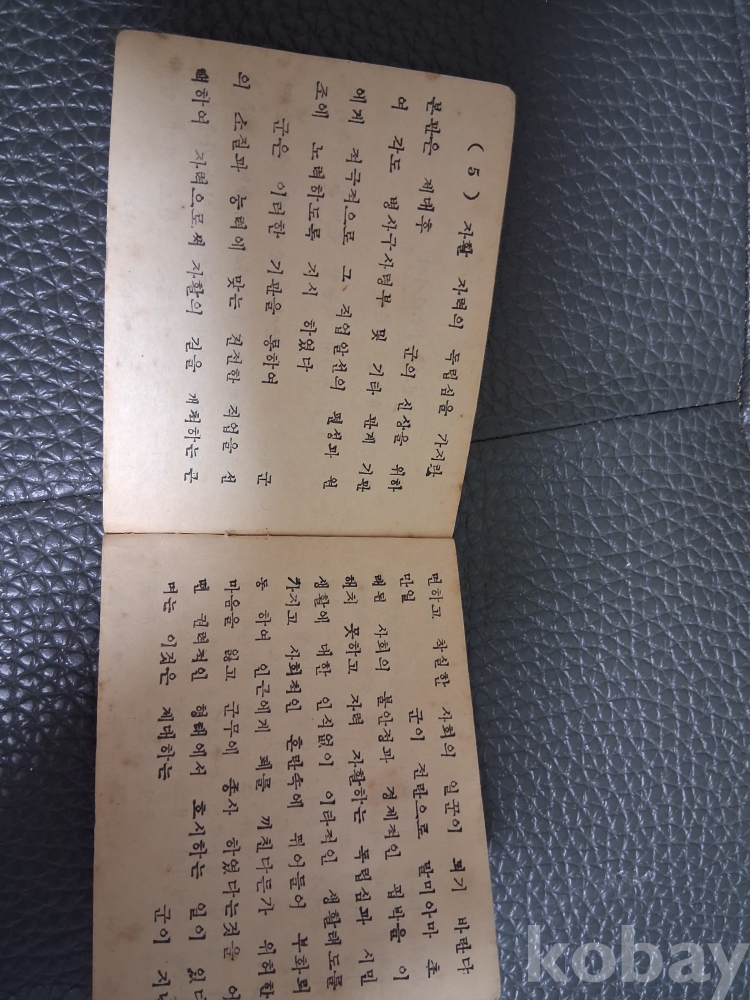 ( 5 ) 자활 자력의 독립심을 가지라
본관은 제대후 군의 신상을 위하
여 각도 병사구사령부 및 기타 관계 기관
에게 적극적으로 그 직업알선의 편성과 원
조에 노력하도록 지시 하였다
군은 이러한 기관을 통하여 군
의 소질과 능력에 맞는 건전한 직업을 선
택하여 자력으로써 자활의 길을 개척하는 근
면하고 착실한 사회의 일꾼이 되기 바란다
만일 군이 전란으로 말미아마 초
래된 사회의 불안정과 경제적인 핍박을 이
해치 못하고 자력 자활하는 독립심과 시민
생활에 대한 인식없이 이타적인 생활태도를
가지고 사회적인 혼란속에 뛰어들어 부화뢰
동 하여 인근에게 폐를 끼친다든가 위허한
마음을 잃고 군무에 종사 하였다는것을 어
떤 권력적인 형태에서 호사하는 일이 있다
며는 이것은 제대하는 군이
kobay